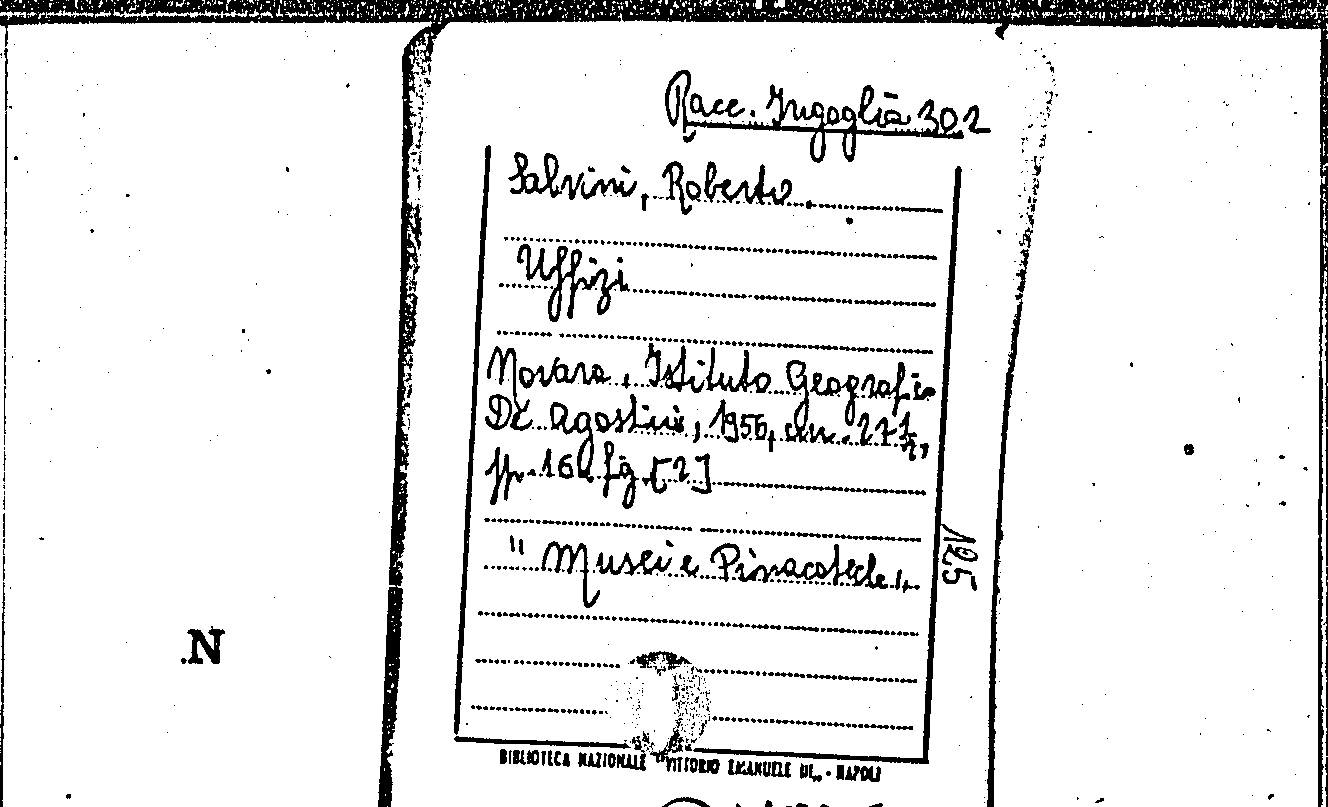 Racc. Ingoglia 302
Salvini, Roberto.
Uffizi
Novara, Istituto Geografico
De Agostini, 1956, cm. 27½,
pp. 162 fig. [2]
" Musei e Pinacoteche „
125
.N
BIBLIOTECA NAZIONALE "VITTORIO EMANUELE III„ - NAPOLI